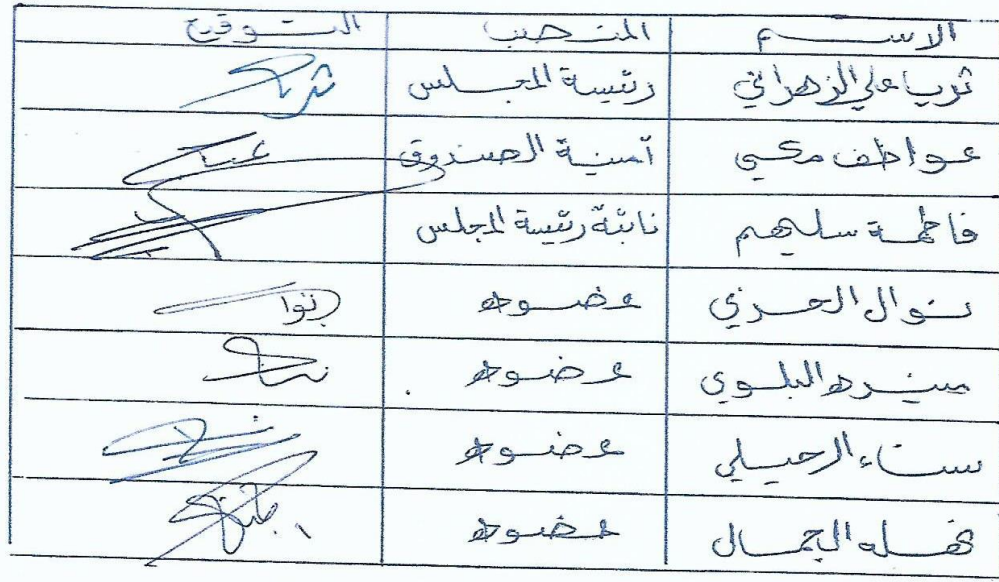 الاسم المنصب التوقيع
ثريا علي الزهراني رئيسة المجلس ثريا
عواطف مكي أمينة الصندوق
فاطمة سليهم نائبة رئيسة المجلس
نوال الحربي عضوه نوا
منيره البلوي عضوه
سناء الرحيلي عضوه
نهله الجمال عضوه